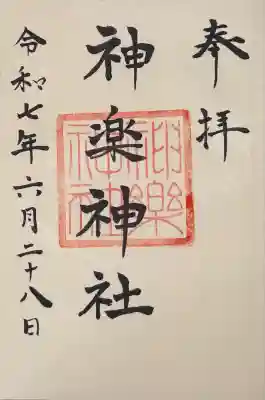 奉拝
神楽神社
令和七年六月二十八日
神樂神社